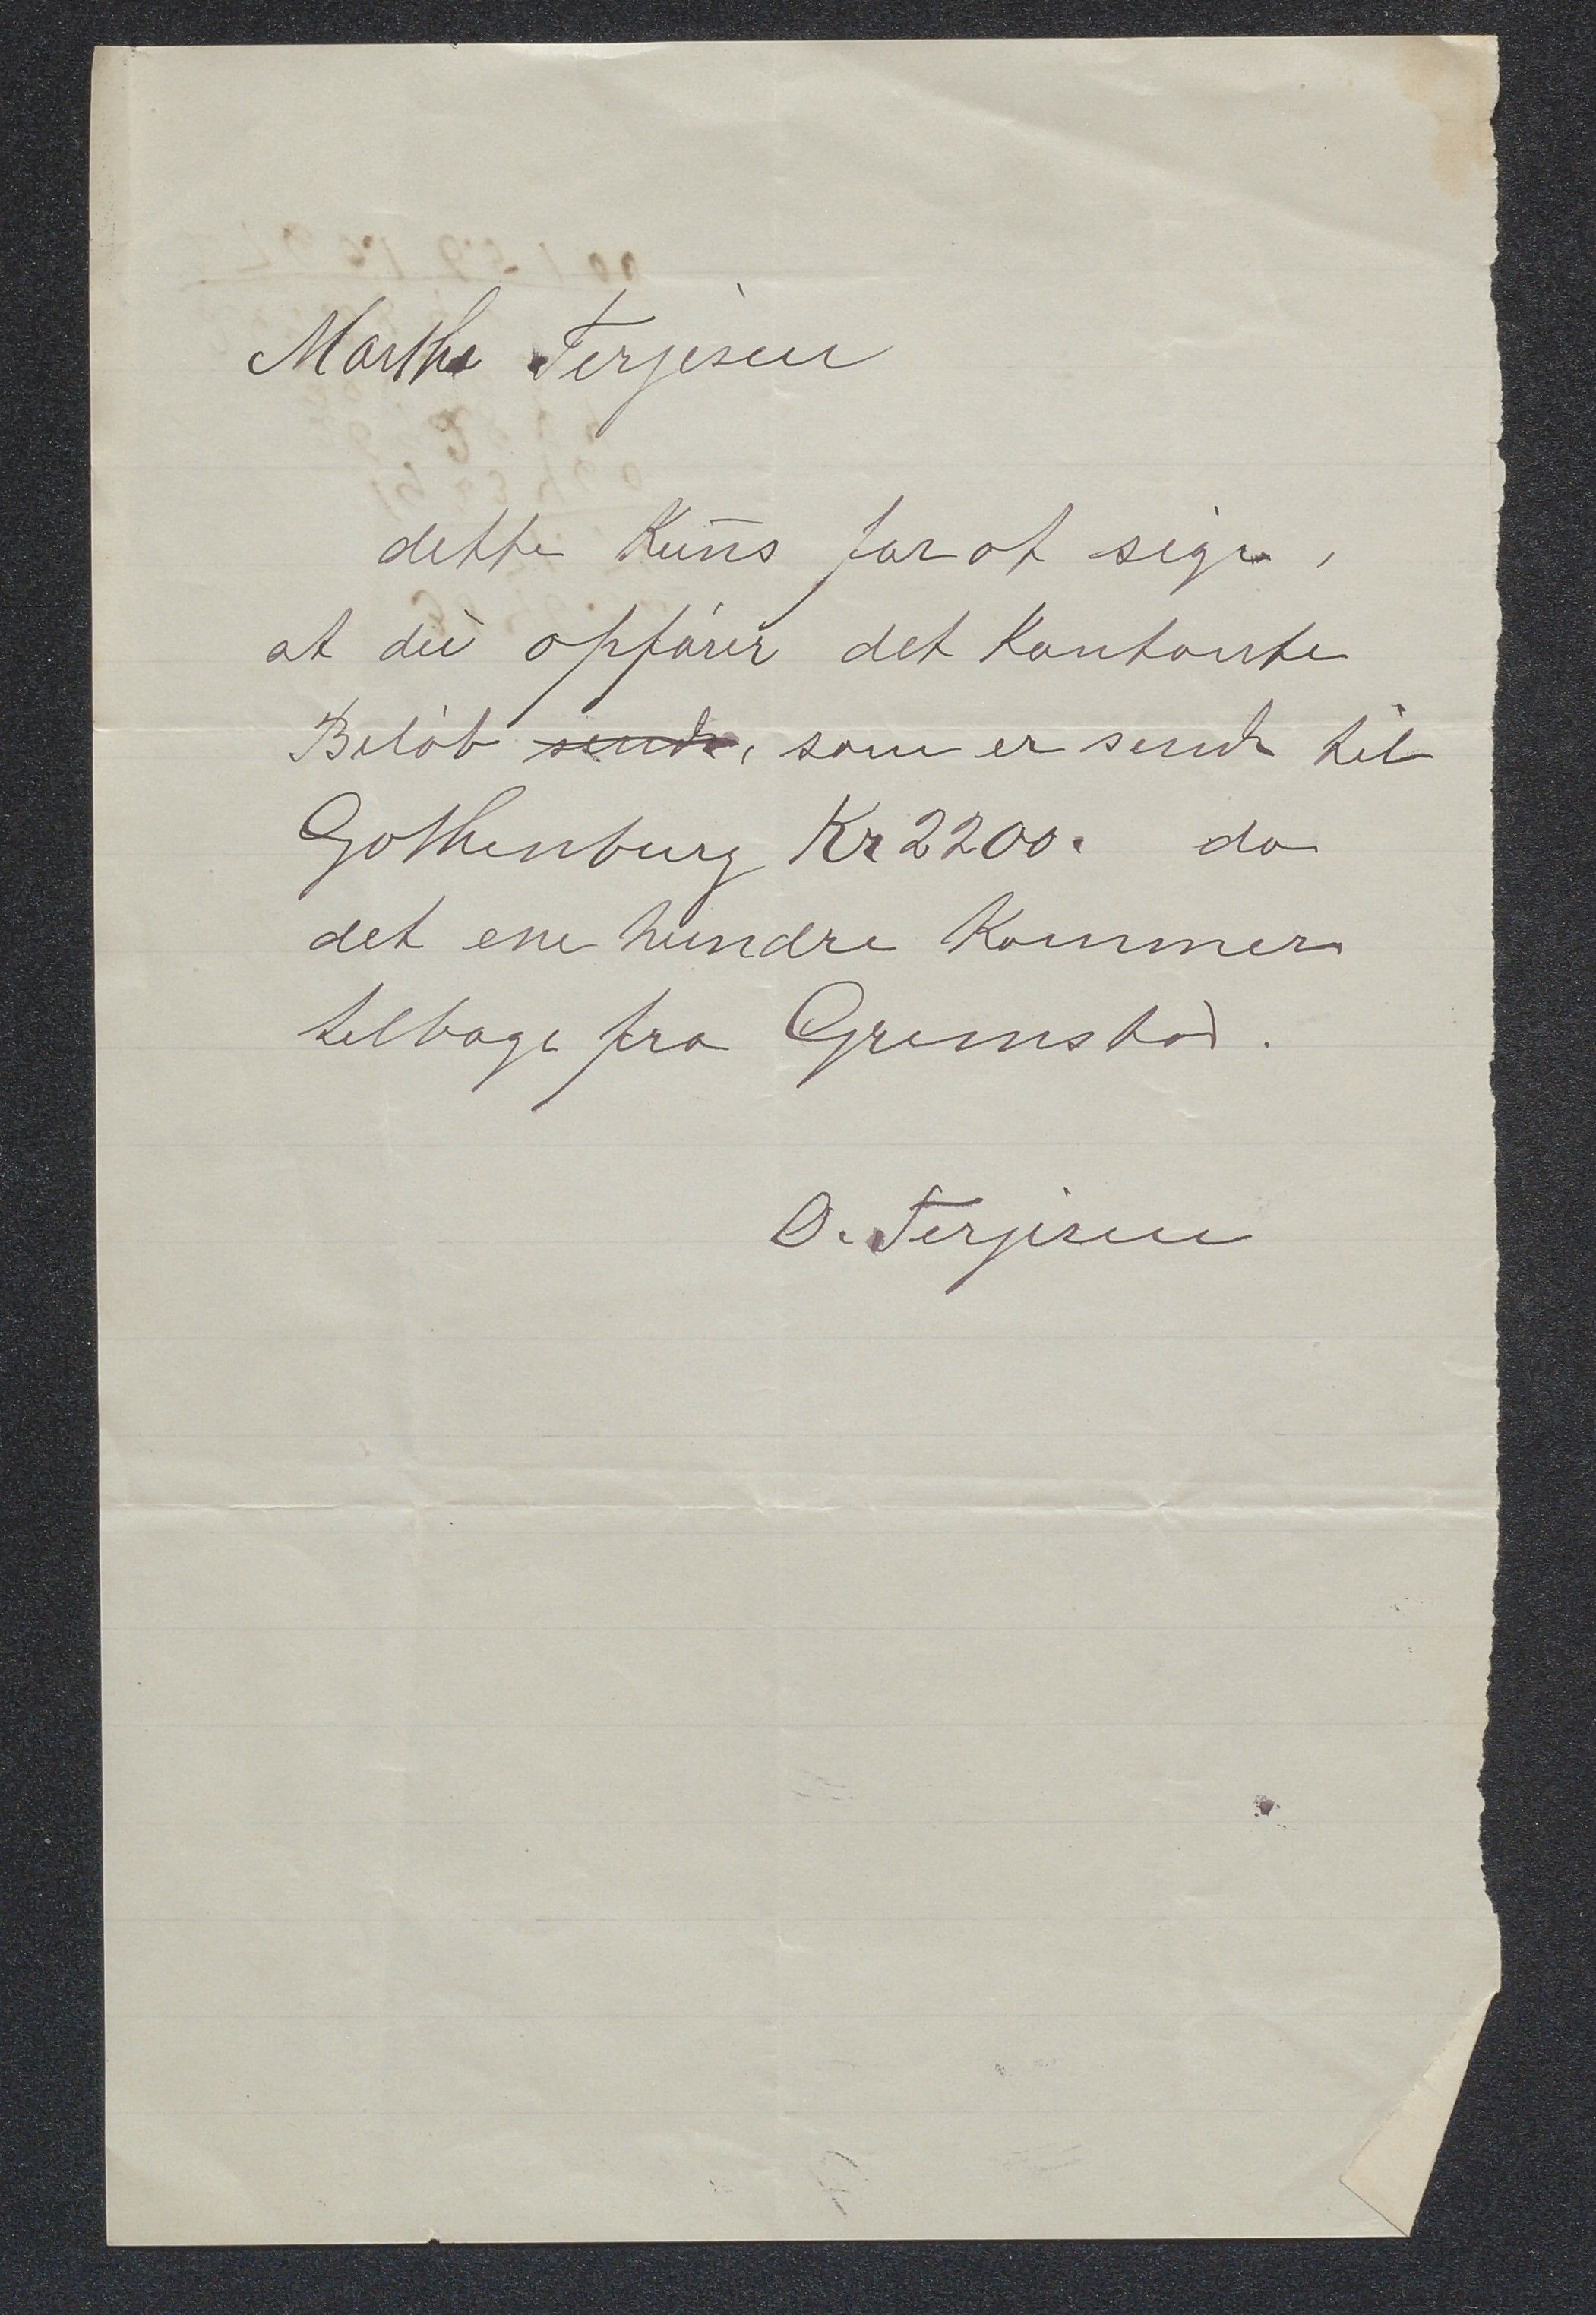 Marthe Terjesen
dette Kuns for at sige,
at du opfører det Kontante
Beløb sendt, som er sendt til
Gothenburg Kr 2200. da
det ene hundre Kommer
tilbage fra Grimstad.
O. Terjesen